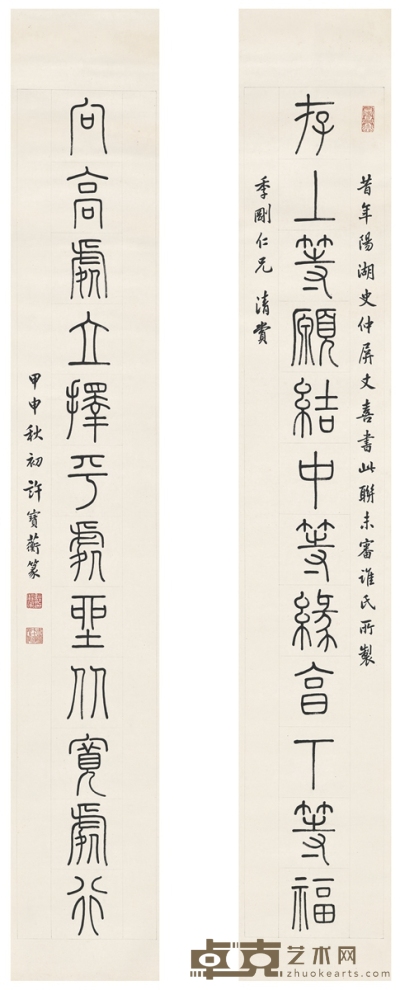 昔年陽湖史仲屏丈喜書此聯未審誰氏所製
存上等願結中等緣享下等福
季剛仁兄 清賞
向高處立擇平處坐从寬處行
甲申秋初許寶蘅篆
卓克艺术网
zhuokearts.com